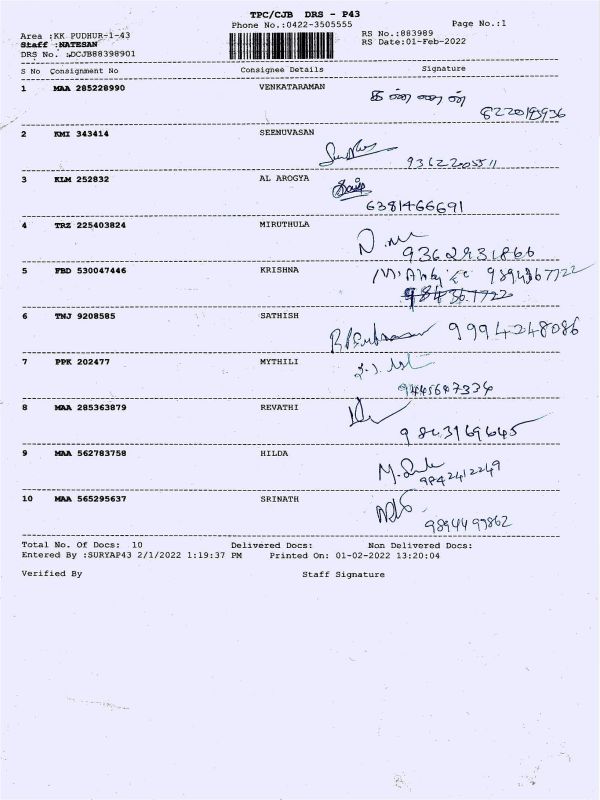 TPC/CJB DRS - P43
Phone No.:0422-3505555 Page No.:1
Area :KK PUDHUR-1-43 RS No.:883989
Staff :NATESAN RS Date:01-Feb-2022
DRS No. :DCJB88398901
S No Consignment No Consignee Details Signature
1 MAA 285228990 VENKATARAMAN கண்ணன்
8220193936
2 KMI 343414 SEENUVASAN
9362205511
3 KLM 252832 AL AROGYA
6381466691
4 TRZ 225403824 MIRUTHULA
9362931866
5 FBD 530047446 KRISHNA 9894367722
6 TNJ 9208585 SATHISH
9994248086
7 PPK 202477 MYTHILI
9445647334
8 MAA 285363879 REVATHI
9843169645
9 MAA 562783758 HILDA
9842412249
10 MAA 565295637 SRINATH
9894499862
Total No. Of Docs: 10 Delivered Docs: Non Delivered Docs:
Entered By :SURYAP43 2/1/2022 1:19:37 PM Printed On: 01-02-2022 13:20:04
Verified By Staff Signature